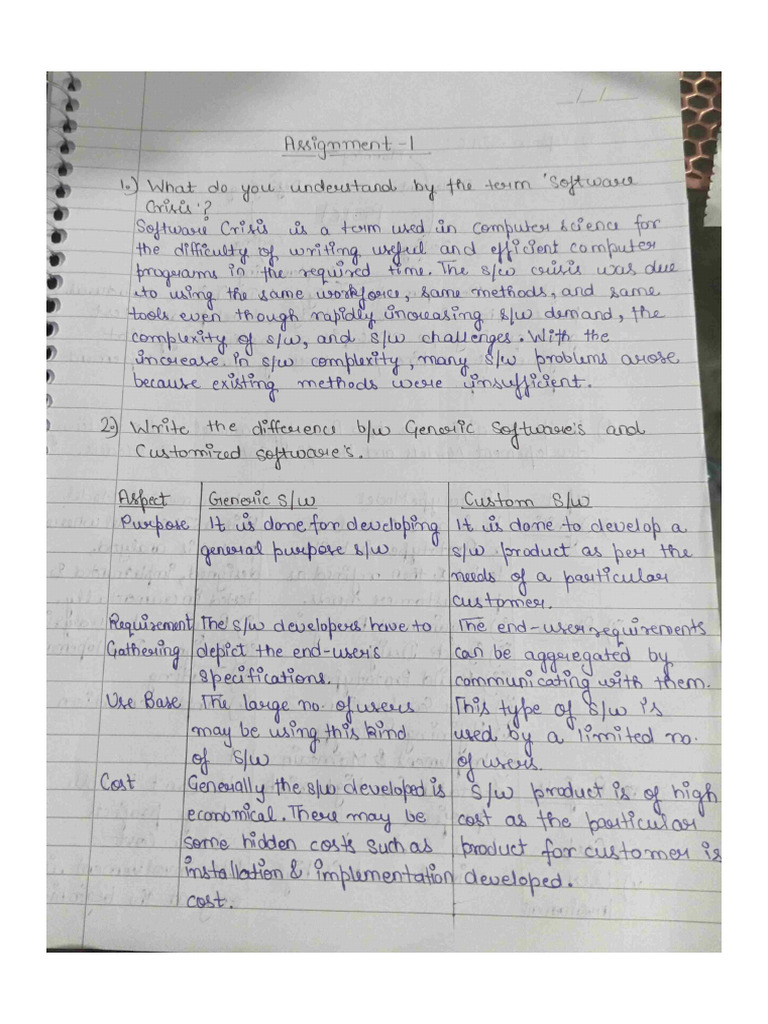 __/__/____
Assignment-1
1.) What do you understand by the term 'Software
Crisis'?
Software Crisis is a term used in computer science for
the difficulty of writing useful and efficient computer
programs in the required time. The s/w crisis was due
to using the same workforce, same methods, and same
tools even though rapidly increasing s/w demand, the
complexity of s/w, and s/w challenges. With the
increase in s/w complexity, many s/w problems arose
because existing methods were insufficient.
2.) Write the difference b/w Generic Software's and
Customized software's.
Aspect Generic S/w Custom S/w
Purpose It is done for developing It is done to develop a
general purpose s/w s/w product as per the
needs of a particular
customer.
Requirement The s/w developers have to The end-user requirements
Gathering depict the end-user's can be aggregated by
specifications. communicating with them.
Use Base The large no. of users This type of s/w is
may be using this kind used by a limited no.
of s/w of users.
Cost Generally the s/w developed is s/w product is of high
economical. There may be cost as the particular
some hidden costs such as product for customer is
installation & implementation developed.
cost.